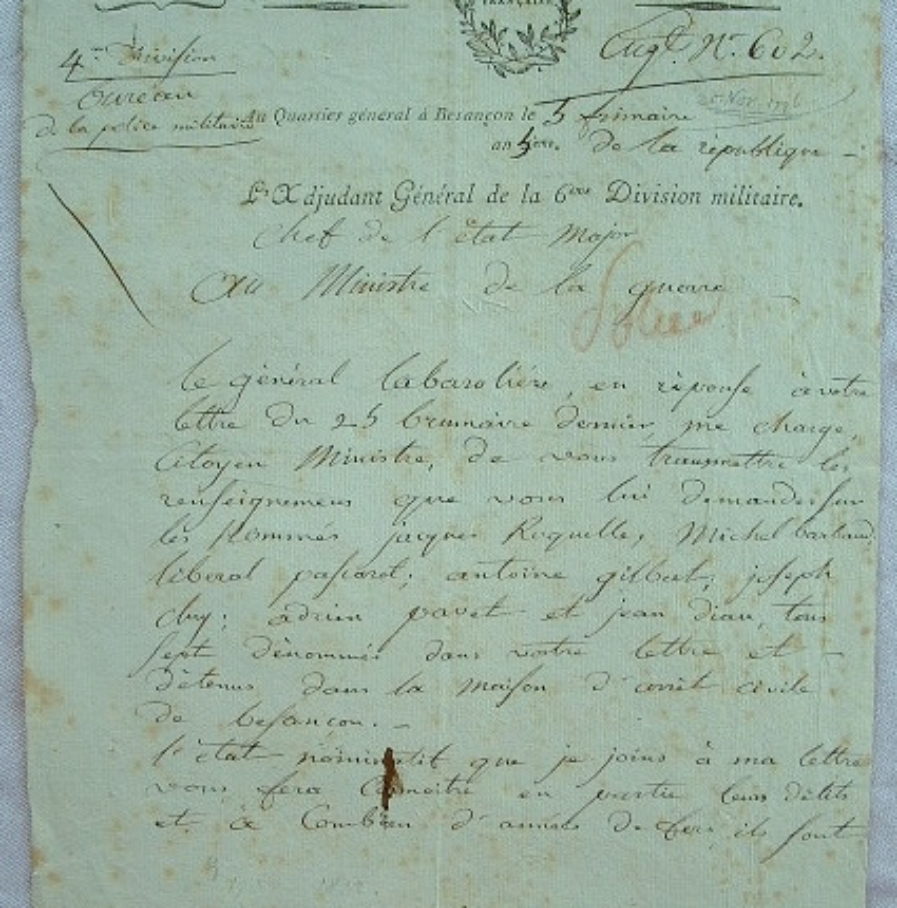 FRANÇAISE
4me Division
Bureau
de la police militaire
N.º 602.
25 Nov. 1796
Au Quartier général à Besançon le 5 frimaire
an 5ème. de la république
L'Adjudant Général de la 6me Division militaire.
Chef de l'état Major
Au Ministre de la guerre
le général labaroliére, en réponse à votre
lettre du 25 brumaire dernier, me charge,
Citoyen Ministre, de vous transmettre les
renseignemens que vous lui demandés sur
les nommés jacques Roquelle, Michel
libéral pasaret; antoine gilbert; joseph
cluy; adrien pavet et jean diau, tous
sept dénommés dans votre lettre et
détenus dans la maison d'arrêt civile
de besançon.
l'état nominatif que je joins à ma lettre
vous fera Connoitre en partie leurs délits
et à Combien d'années de fers ils sont